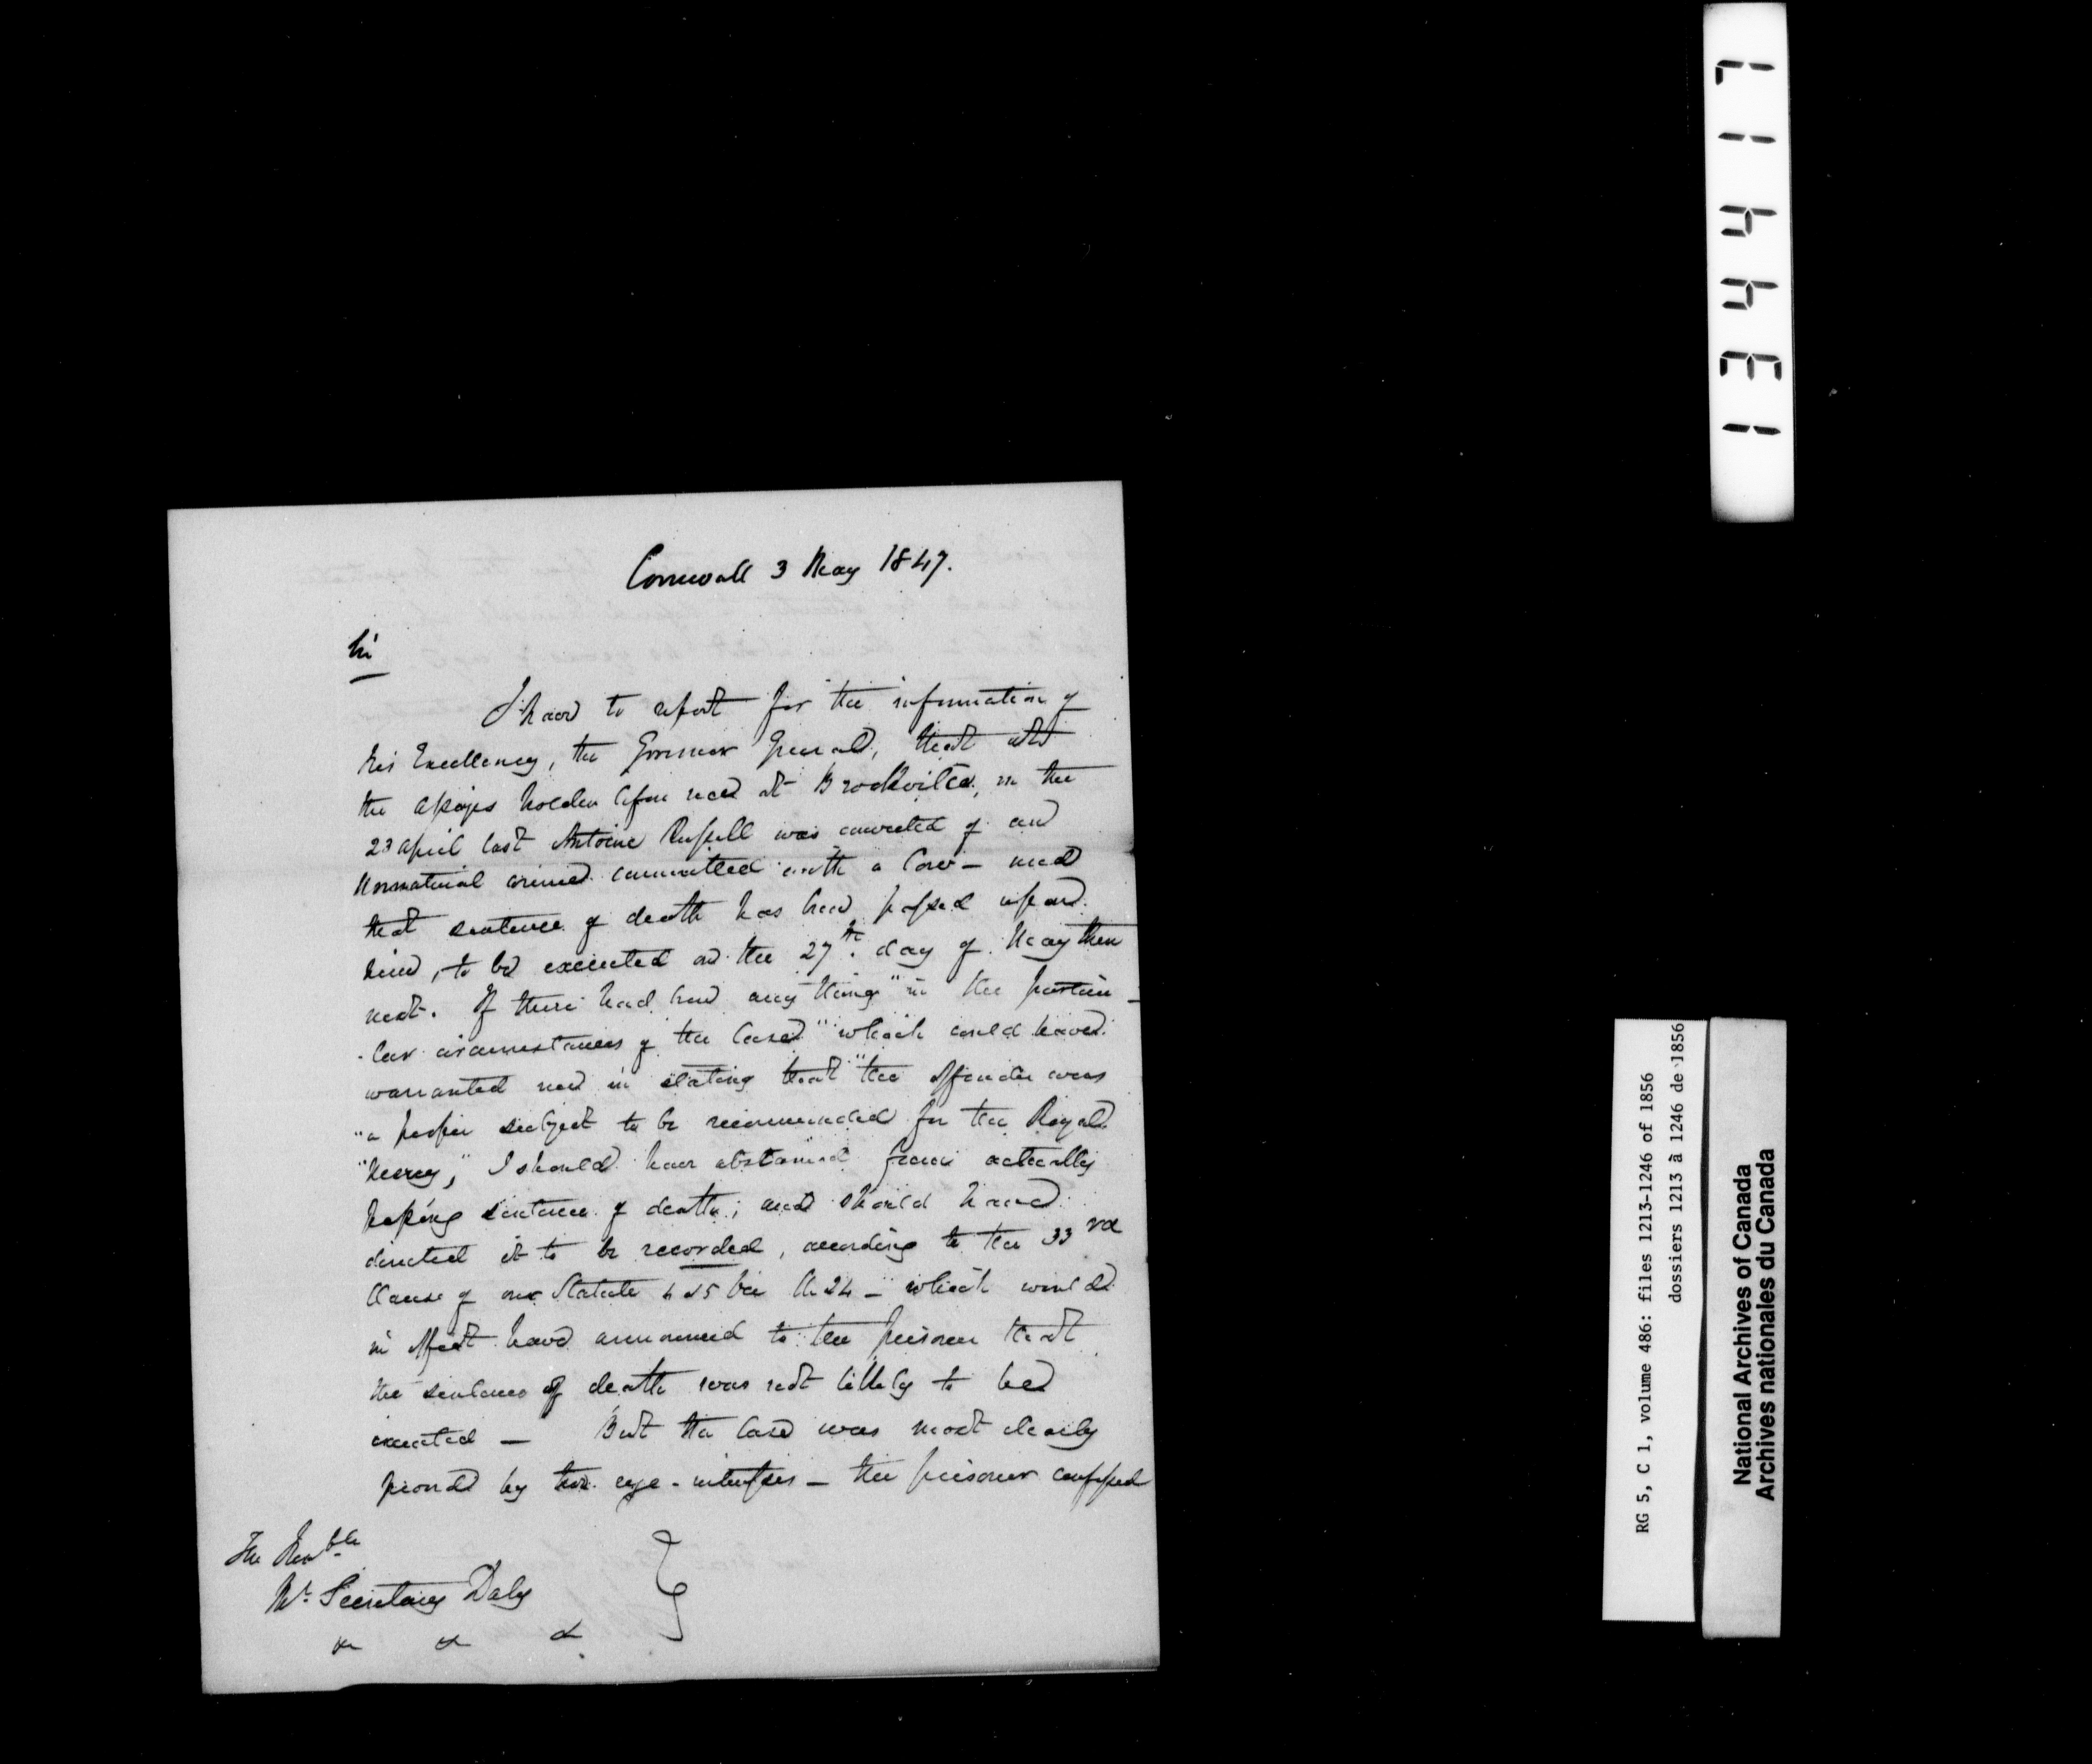 Cornwall 3 May 1847.
Sir
I have to report for the information of
his Excellency, the Governor General, that at
the assizes holden before me at Brockville, on the
23 april last Antoine Russell was convicted of an
Unnatural crime committed with a Cow – and
that sentence of death has been passed upon
him, to be executed on the 27th. day of May then
next. If there had been any thing "in the particu-
-lar circumstances of the Case" which could have
warranted me in stating that "the offender was
"a proper subject to be recommended for the Royal
"Mercy," I should have abstained from actually
passing sentence of death; and should have
directed it to be recorded, according to the 33rd
Clause of our Statute 4 & 5 Vic Ch 24 – which would
in effect have announced to the prisoner that
the sentence of death was not likely to be
executed – But the Case was most clearly
proved by two eye-witnesses – the prisoner confessed
The Honble
Mr. Secretary Daly
&c &c &c
134417
RG 5, C 1, volume 486: files 1213-1246 of 1856
dossiers 1213 à 1246 de 1856
National Archives of Canada
Archives nationales du Canada